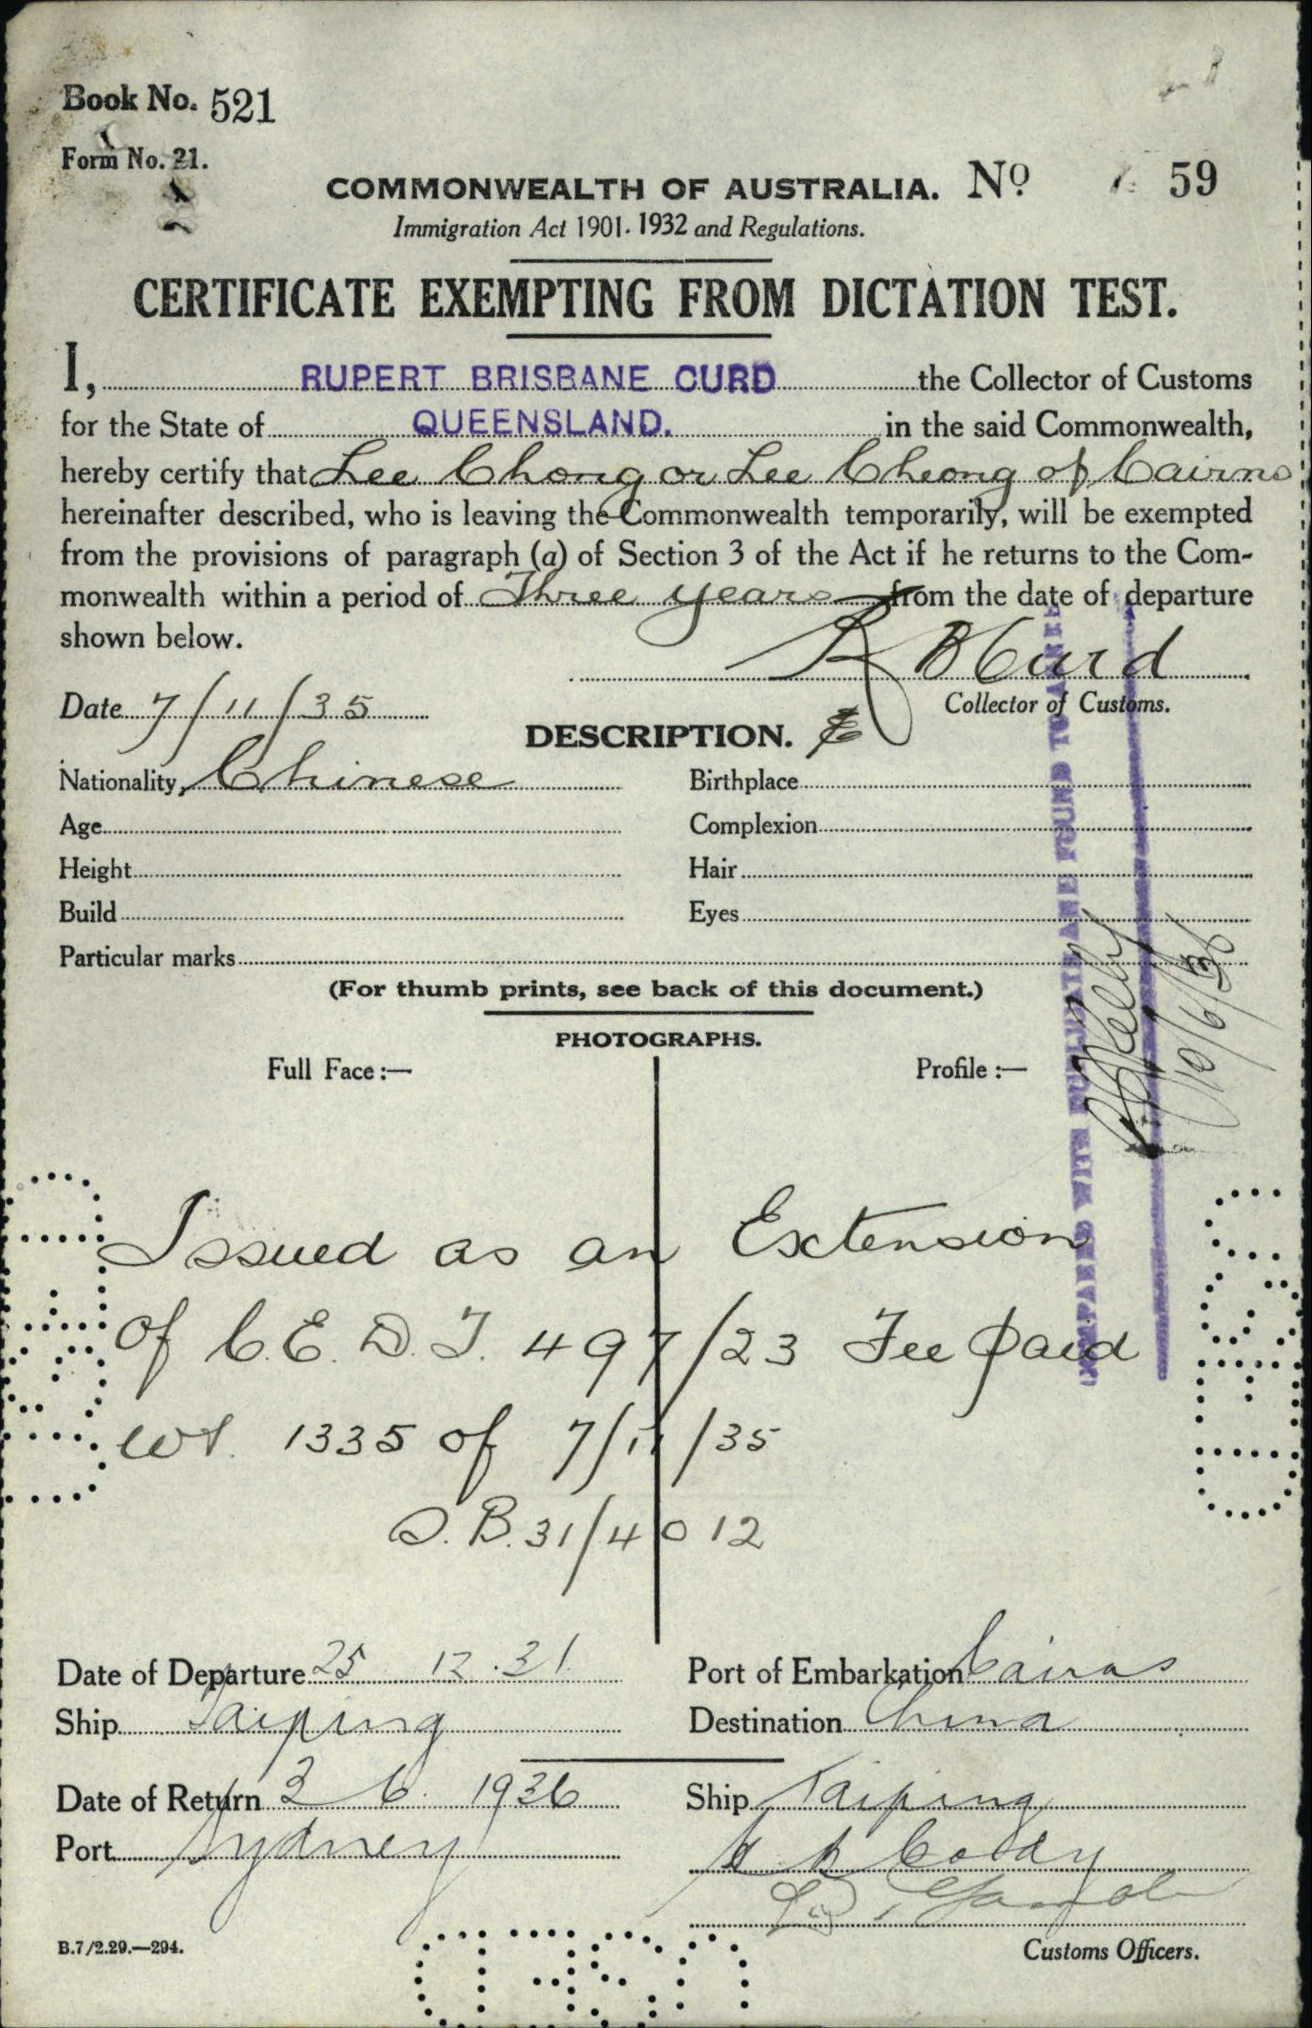 Book No. 521
Form No. 21.
COMMONWEALTH OF AUSTRALIA. No 59
Immigration Act 1901-1932 and Regulations.
CERTIFICATE EXEMPTING FROM DICTATION TEST.
I, RUPERT BRISBANE CURD the Collector of Customs
for the State of QUEENSLAND. in the said Commonwealth,
hereby certify that Lee Chong or Lee Cheong of Cairns
hereinafter described, who is leaving the Commonwealth temporarily, will be exempted
from the provisions of paragraph (a) of Section 3 of the Act if he returns to the Com-
monwealth within a period of Three years from the date of departure
shown below.
R B Curd
Date 7/11/35
Collector of Customs.
DESCRIPTION.
Nationality, Chinese Birthplace
Age Complexion
Height Hair
Build Eyes
Particular marks
(For thumb prints, see back of this document.)
PHOTOGRAPHS.
Full Face :— Profile :—
COMPARED WITH DUPLICATE AND FOUND TO AGREE
10/6/36
Issued as an Extension
of C.E.D.T. 497/23 Fee paid
1335 of 7/11/35
31/4012
Date of Departure 25 12.31 Port of Embarkation Cairns
Ship Taiping Destination China
Date of Return 3 6. 1936 Ship Taiping
Port Sydney
Coddy
B.7/2.29.—294.
Customs Officers.
USED
USED
USED